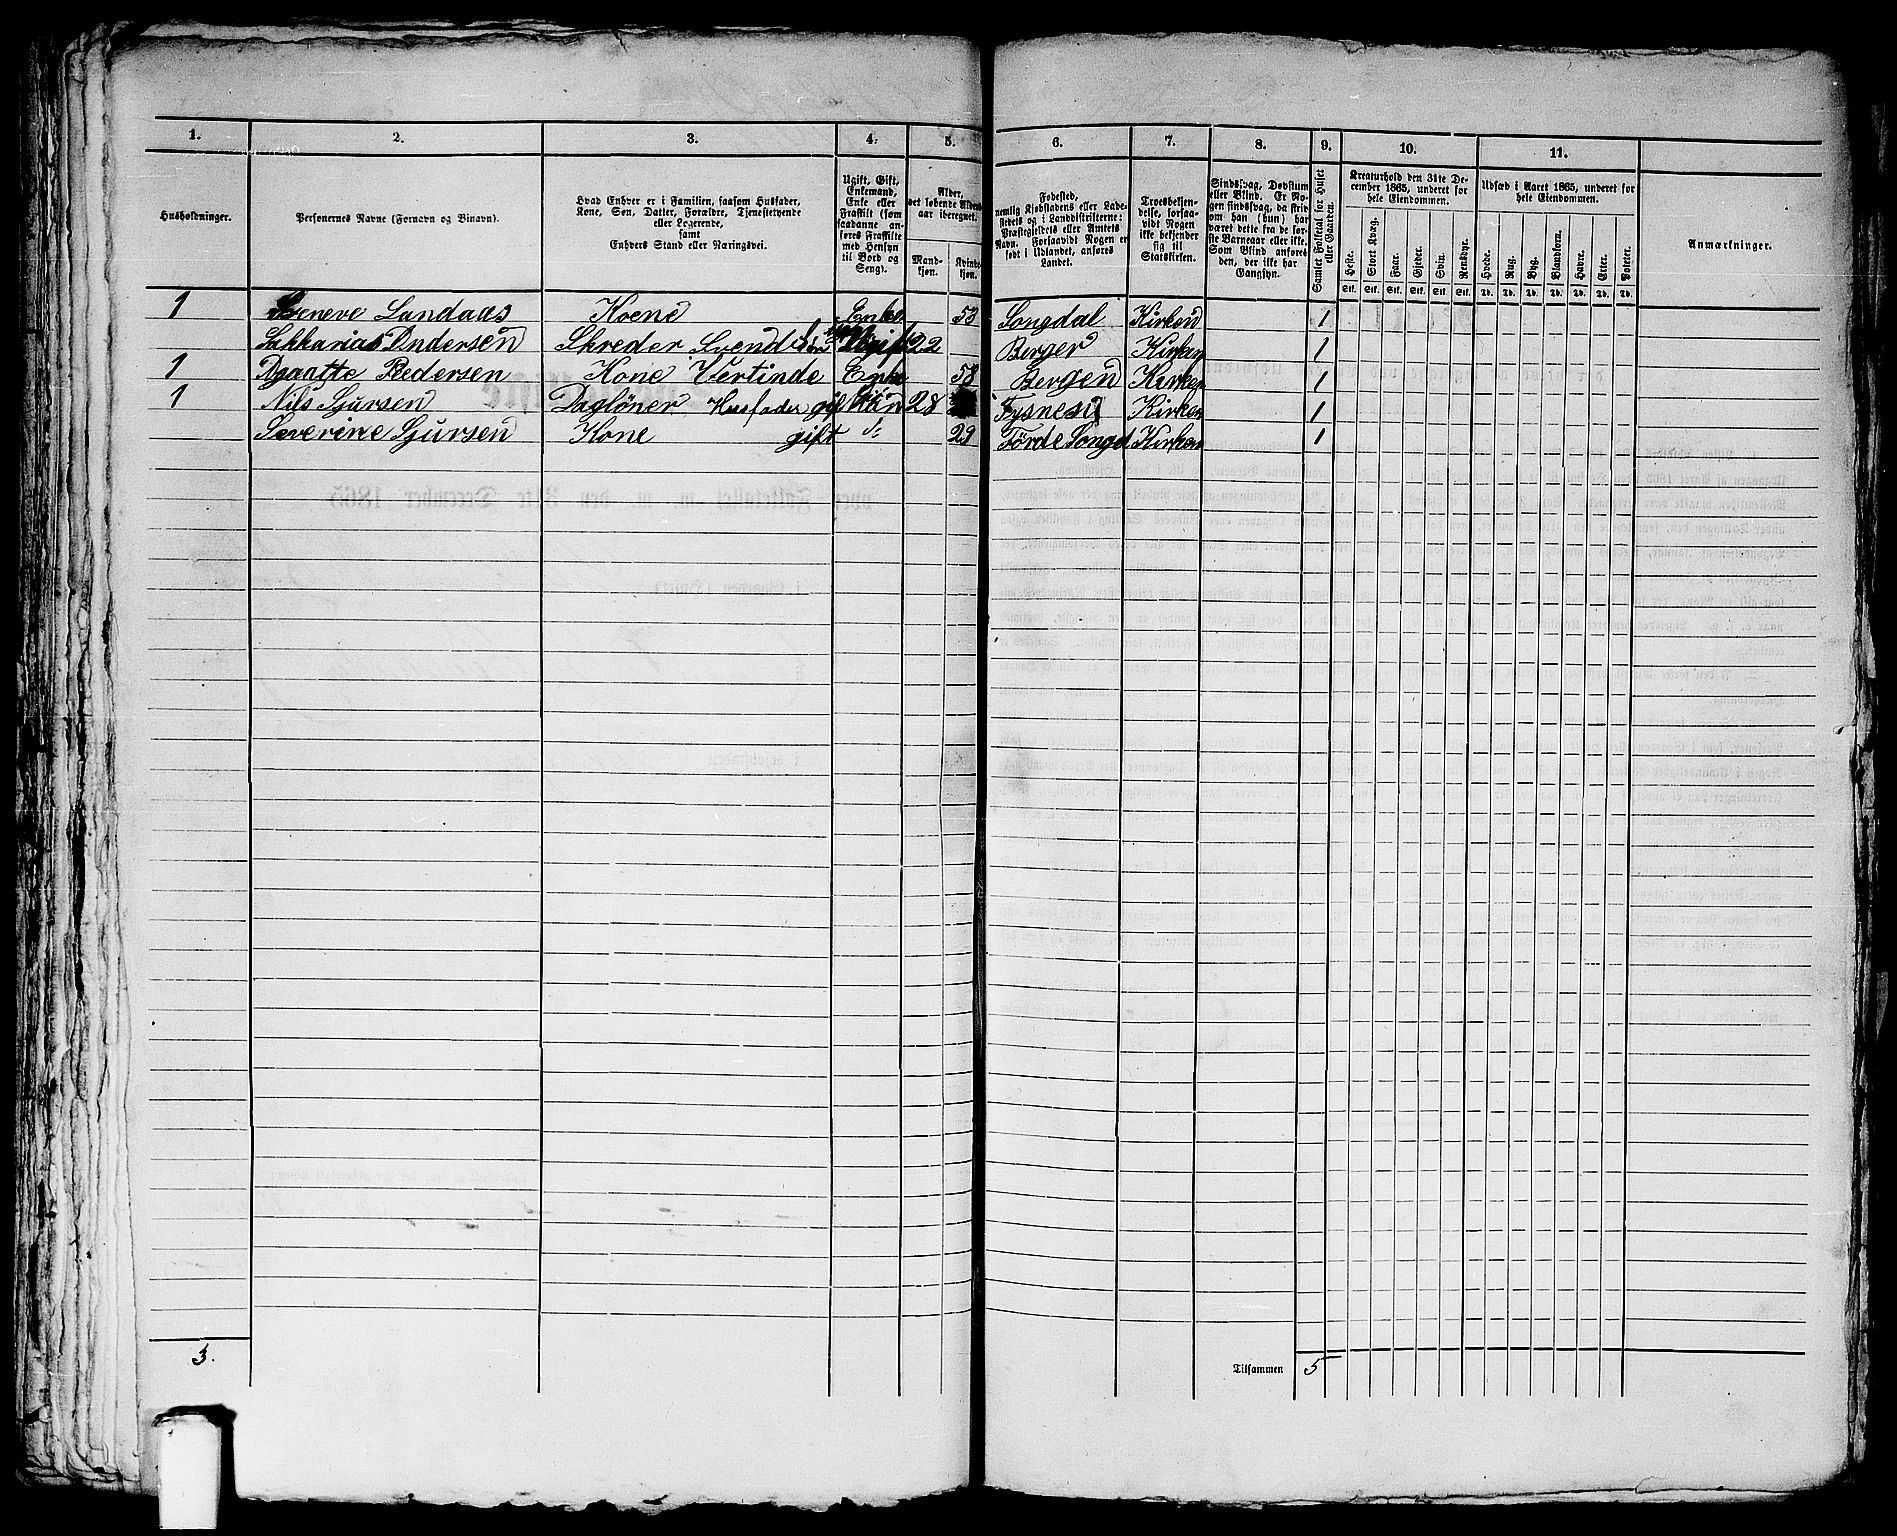 1. 2. 3. 4. 5. 6. 7. 8. 9. 10. 11.
Husholdninger.
Personernes Navne (Fornavn og Binavn).
Hvad Enhver er i Familien, saasom Husfader,
Kone, Søn, Datter, Forældre, Tjenestetyende
eller Logerende,
samt
Enhvers Stand eller Næringsvei.
Ugift, Gift,
Enkemand,
Enke eller
Fraskilt (som
saadanne an-
føres Fraskilte
med Hensyn
til Bord og
Seng).
Alder,
det løbende Alders-
aar iberegnet.
Mand-
kjøn.
Kvinde-
kjøn.
Fødested,
nemlig Kjøbstadens eller Lade-
stedets og i Landdistrikterne:
Præstegjeldets eller Amtets
Navn. Forsaavidt Nogen er
født i Udlandet, anføres
Landet.
Troesbekjen-
delse, forsaa-
vidt Nogen
ikke bekjender
sig til
Statskirken.
Sindssvag, Døvstum
eller Blind. Er No-
gen sindssvag, da skriv
om han (hun) har
været dette fra de før-
ste Barneaar eller ikke.
Som Blind anføres
den, der ikke har
Gangsyn.
Samlet Folketal for Huset
eller Gaarden.
Kreaturhold den 31te De-
cember 1865, underet for
hele Eiendommen.
Heste. Stort Kvæg. Faar. Gjeder. Svin. Rensdyr.
Stk. Stk. Stk. Stk. Stk. Stk.
Udsæd i Aaret 1865, underet for
hele Eiendommen.
Hvede. Rug. Byg. Blandkorn. Havre. Erter. Poteter.
Td. Td. Td. Td. Td. Td. Td.
Anmærkninger.
1 Seneve Landaas Koene Enke 53 Songdal Kirken 1
Sakkarias Andersen Skreder Svend Ugift 22 Berger Kirken 1
1 Pedersen Kone Vertinde Enke 58 Bergen Kirken 1
1 Nils Sjursen Daglöner Husfader gift 28 Kirken 1
Severine Sjursen Kone gift 29 Förde Songd Kirken 1
3. Tilsammen 5